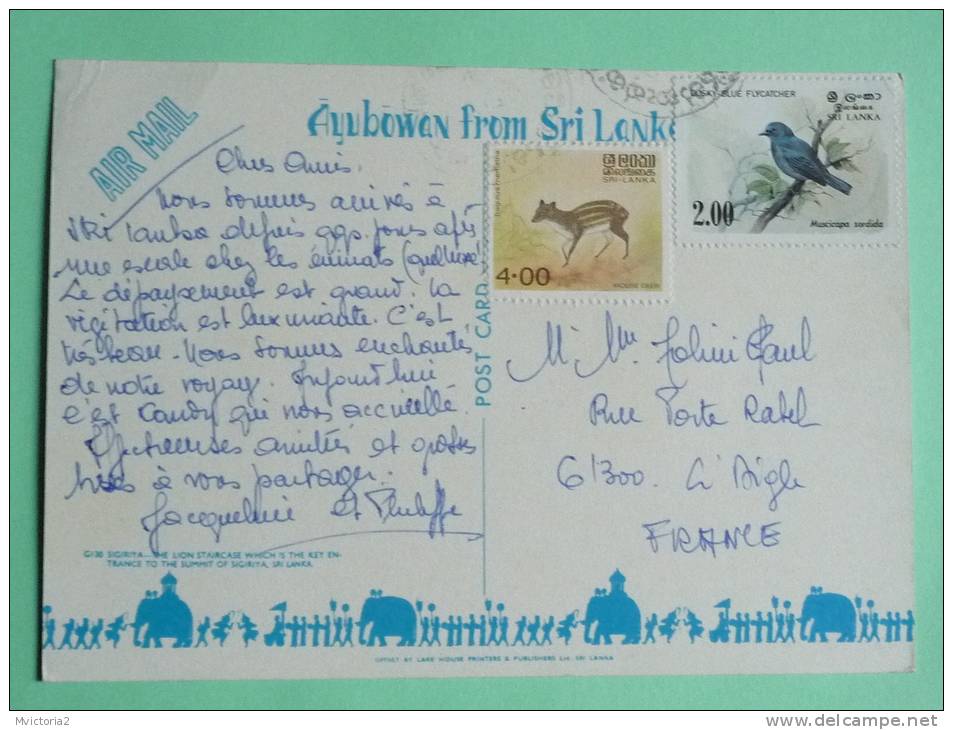 AIR MAIL
Āyubōwan from Sri Lanka
Chers Amis.
Nous sommes arrivés à
Sri Lanka depuis qqs. jours après
une escale chez les émirats
Le dépaysement est grand. La
végétation est luxuriante. C'est
très beau. Nous sommes enchantés
de notre voyage. Aujourd'hui
c'est Candy qui nous accueille.
Affectueuses amitiés et grosses
bises à vous partager.
Jacqueline et Philippe
G/130 SIGIRIYA—THE LION STAIRCASE WHICH IS THE KEY EN-
TRANCE TO THE SUMMIT OF SIGIRIYA, SRI LANKA
POST CARD
ශ්‍රී ලංකා
இலங்கை
SRI-LANKA
4·00
MOUSE DEER
DUSKY-BLUE FLYCATCHER
ශ්‍රී ලංකා
இலங்கை
SRI LANKA
2.00
Muscicapa sordida
M. Mme Paul
Rue Porte Rabel
61300. L'Aigle
FRANCE
OFFSET BY LAKE HOUSE PRINTERS & PUBLISHERS Ltd. SRI LANKA
Mvictoria2
www.delcampe.net